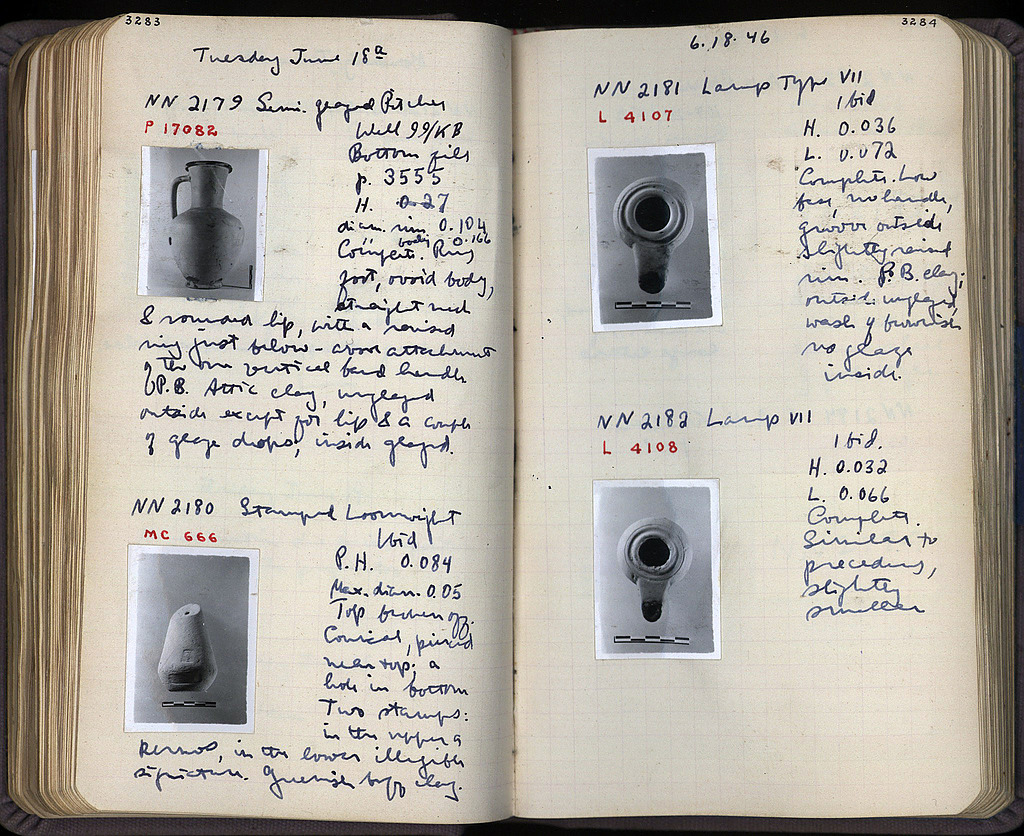 3283
Tuesday June 18ª
NN 2179 Semi-glazed Pitcher
P 17082
Well 99/KB
Bottom fill
p. 3555
H. 0.27
diam. rim. 0.104
" body 0.166
Complete. Ring
foot, ovoid body,
straight neck
& rounded lip, with a raised
ring just below – above attachment
of the one vertical band handle
P.B. Attic clay, unglazed
outside except for lip & a couple
of glaze drops, inside glazed.
NN 2180 Stamped Loomweight
MC 666
Ibid
P.H. 0.084
Max. diam. 0.05
Top broken off.
Conical, pierced
near top; a
hole in bottom
Two stamps:
in the upper a
kernos, in the lower illegible
Greenish buff clay.
3284
6.18.46
NN 2181 Lamp Type VII
L 4107
Ibid
H. 0.036
L. 0.072
Complete. Low
base, no handle,
groove outside
slightly raised
rim. P.B. clay;
outside unglazed,
wash of brownish
no glaze
inside.
NN 2182 Lamp VII
L 4108
Ibid.
H. 0.032
L. 0.066
Complete.
Similar to
preceding,
slightly
smaller